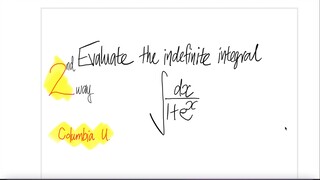 2nd way
Evaluate the indefinite integral
∫ dx/(1+e^x)
Columbia U